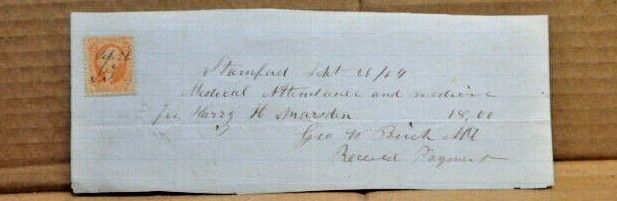 Stamford Sept 26/64
Medical Attendance and medicine
for Harry H Marsden 18,00
Geo W Birch MD
Received Payment
Sept